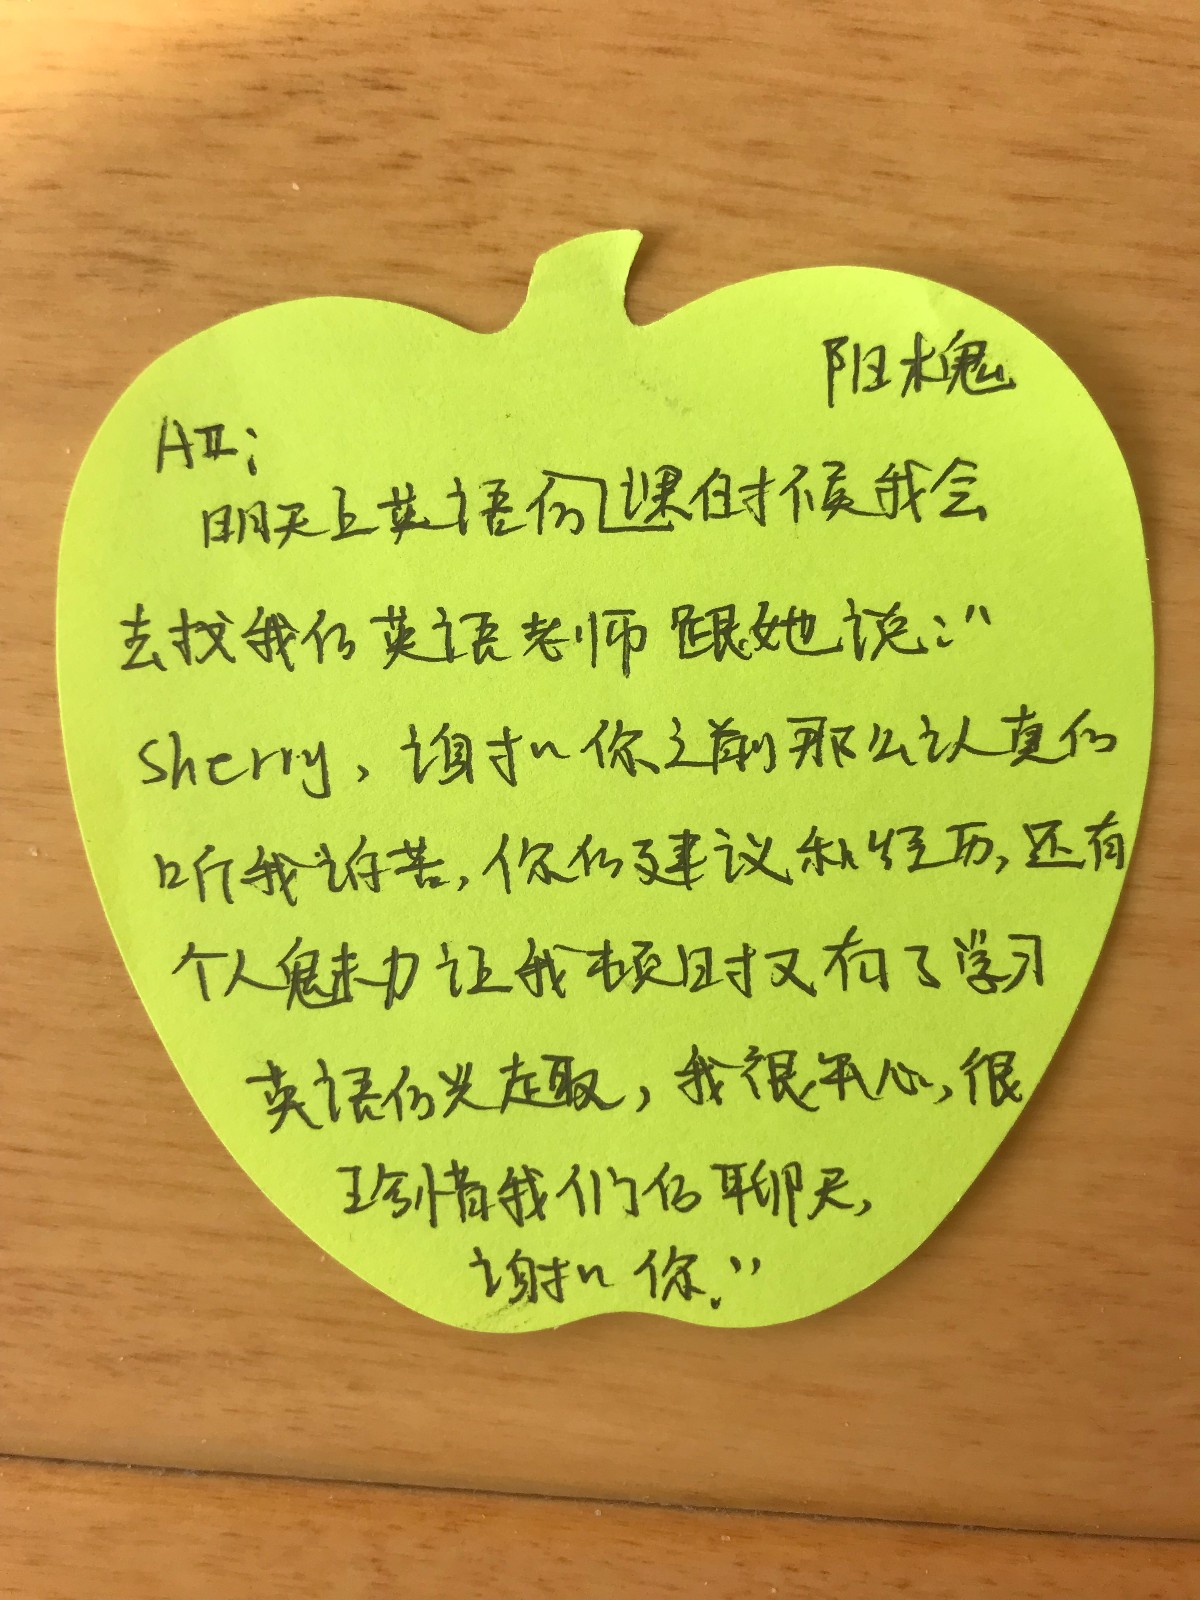 阳槐
AII:
明天上英语的课的时候我会
去找我的英语老师跟她说:"
Sherry, 谢谢你之前那么认真的
听我诉苦,你的建议和经历,还有
个人魅力让我顿时又有了学习
英语的兴趣,我很开心,很
珍惜我们的聊天,
谢谢你."